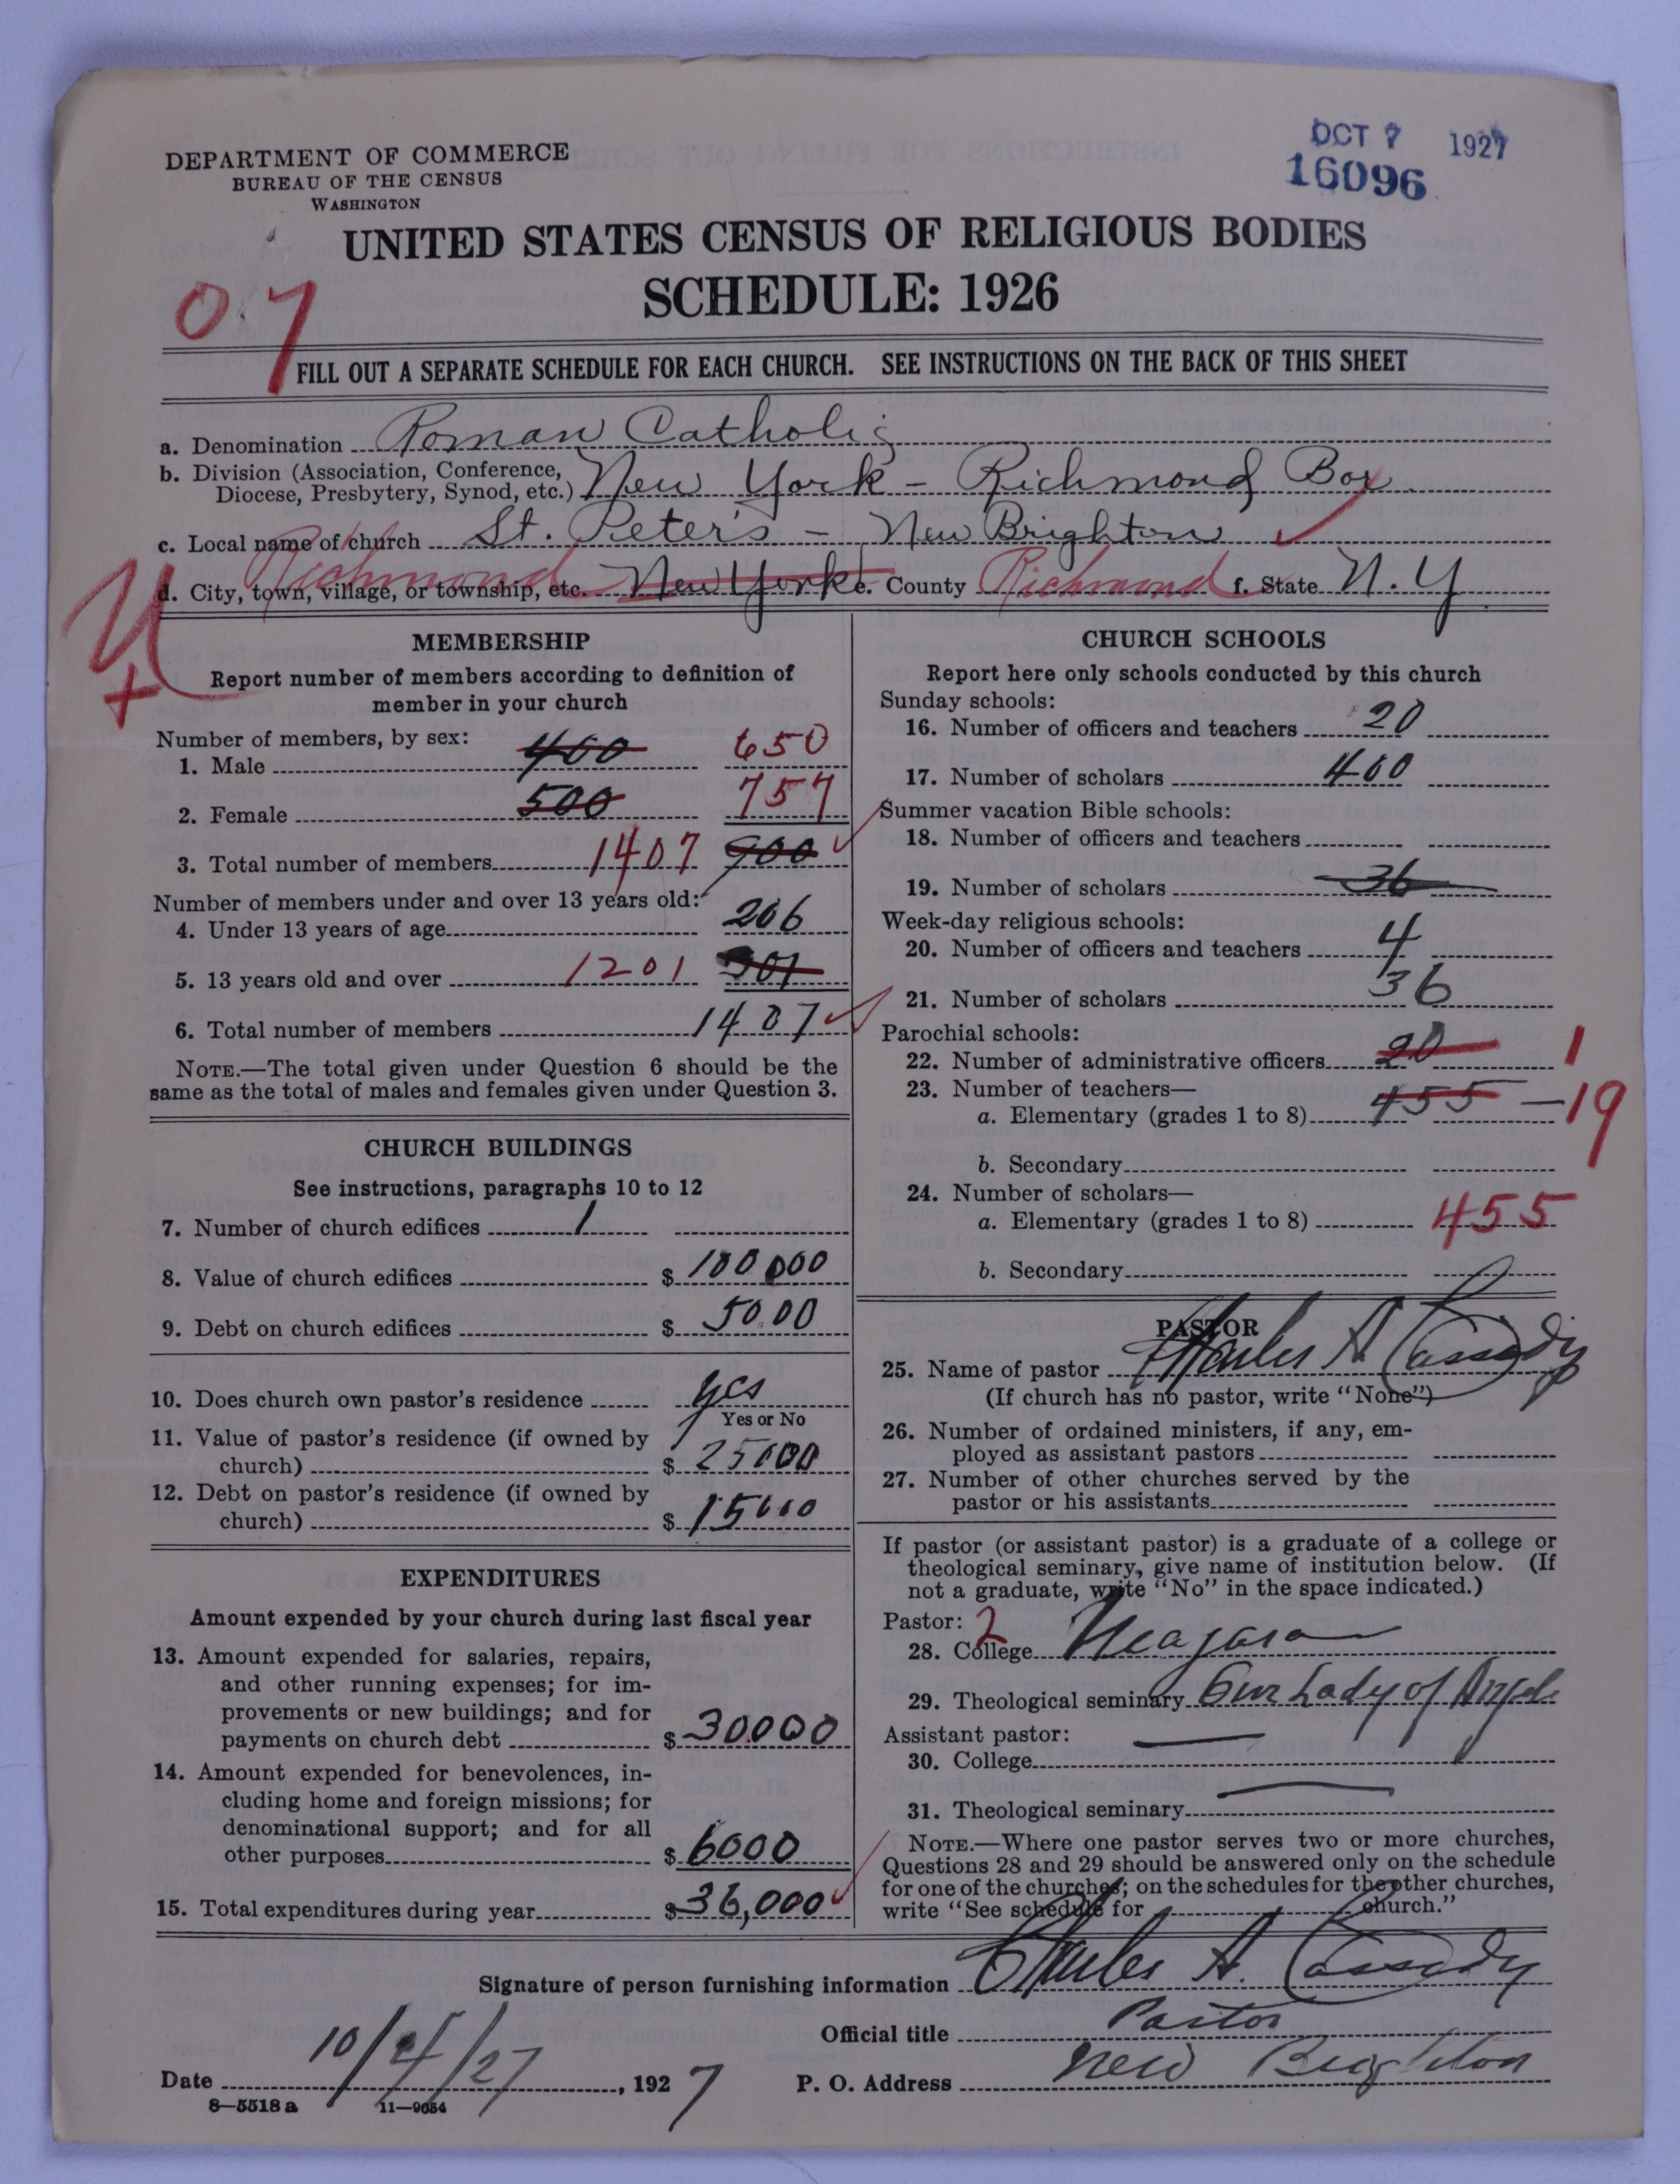 OCT 7 1927
16096
DEPARTMENT OF COMMERCE
BUREAU OF THE CENSUS
WASHINGTON
UNITED STATES CENSUS OF RELIGIOUS BODIES
SCHEDULE: 1926
07
FILL OUT A SEPARATE SCHEDULE FOR EACH CHURCH. SEE INSTRUCTIONS ON THE BACK OF THIS SHEET
a. Denomination Roman Catholic
b. Division (Association, Conference, Diocese, Presbytery, Synod, etc.) New York - Richmond Bor
c. Local name of church St. Peter's - New Brighton
d. City, town, village, or township, etc. Richmond New York e. County Richmond f. State N.Y
MEMBERSHIP
Report number of members according to definition of
member in your church
Number of members, by sex:
1. Male 400 650
2. Female 500 757
3. Total number of members 1407 900
Number of members under and over 13 years old:
4. Under 13 years of age 206
5. 13 years old and over 1201 301
6. Total number of members 1407
NOTE.—The total given under Question 6 should be the
same as the total of males and females given under Question 3.
CHURCH BUILDINGS
See instructions, paragraphs 10 to 12
7. Number of church edifices 1
8. Value of church edifices $ 100000
9. Debt on church edifices $ 5000
10. Does church own pastor's residence yes
Yes or No
11. Value of pastor's residence (if owned by
church) $ 25000
12. Debt on pastor's residence (if owned by
church) $ 15000
EXPENDITURES
Amount expended by your church during last fiscal year
13. Amount expended for salaries, repairs,
and other running expenses; for im-
provements or new buildings; and for
payments on church debt $ 30000
14. Amount expended for benevolences, in-
cluding home and foreign missions; for
denominational support; and for all
other purposes $ 6000
15. Total expenditures during year $ 36,000
CHURCH SCHOOLS
Report here only schools conducted by this church
Sunday schools:
16. Number of officers and teachers 20
17. Number of scholars 400
Summer vacation Bible schools:
18. Number of officers and teachers
19. Number of scholars 36
Week-day religious schools:
20. Number of officers and teachers 4
21. Number of scholars 36
Parochial schools:
22. Number of administrative officers 20 1
23. Number of teachers—
a. Elementary (grades 1 to 8) 455 —19
b. Secondary
24. Number of scholars—
a. Elementary (grades 1 to 8) 455
b. Secondary
PASTOR
25. Name of pastor Charles A Cassidy
(If church has no pastor, write "None")
26. Number of ordained ministers, if any, em-
ployed as assistant pastors
27. Number of other churches served by the
pastor or his assistants
If pastor (or assistant pastor) is a graduate of a college or
theological seminary, give name of institution below. (If
not a graduate, write "No" in the space indicated.)
Pastor: 2
28. College Neagara
29. Theological seminary Our Lady of Angels
Assistant pastor:
30. College —
31. Theological seminary —
NOTE.—Where one pastor serves two or more churches,
Questions 28 and 29 should be answered only on the schedule
for one of the churches; on the schedules for the other churches,
write "See schedule for church."
Signature of person furnishing information Charles A. Cassidy
Official title Pastor
Date 10/4/27, 1927 P. O. Address New Brighton
8—5518 a 11—9054